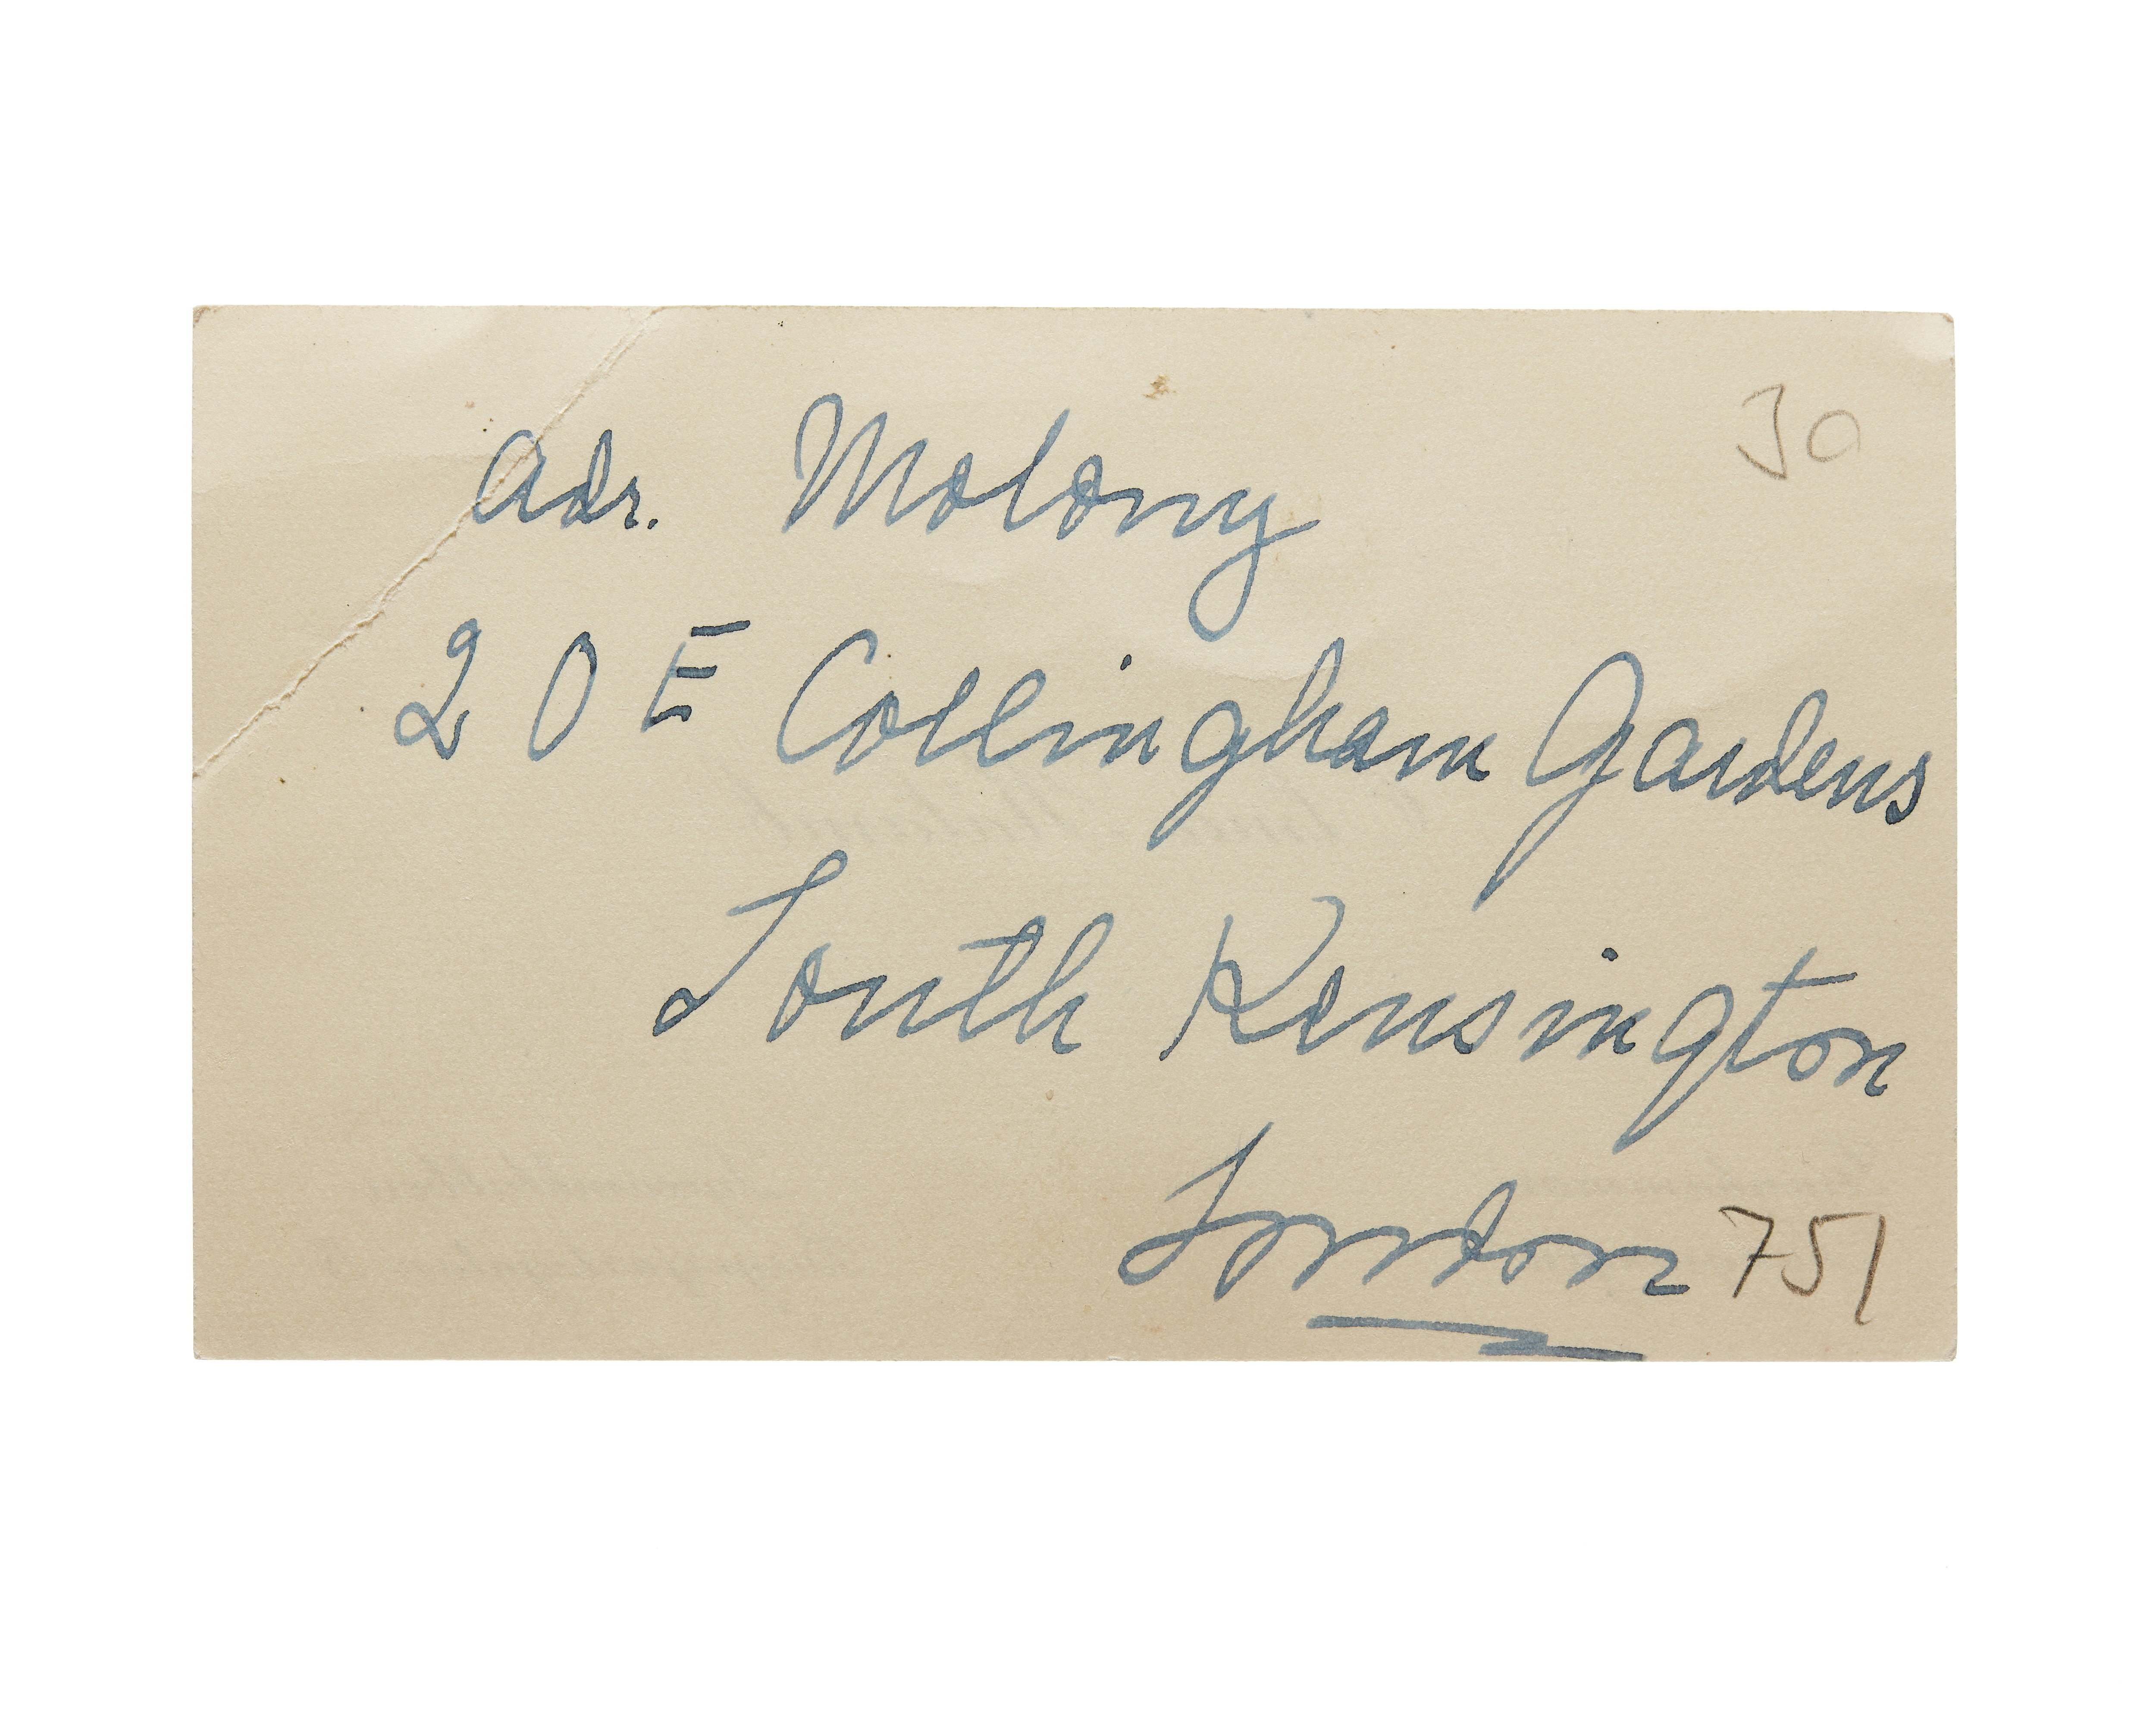 30
Adr. Molony
20 E Collingham Gardens
South Kensington
London 751